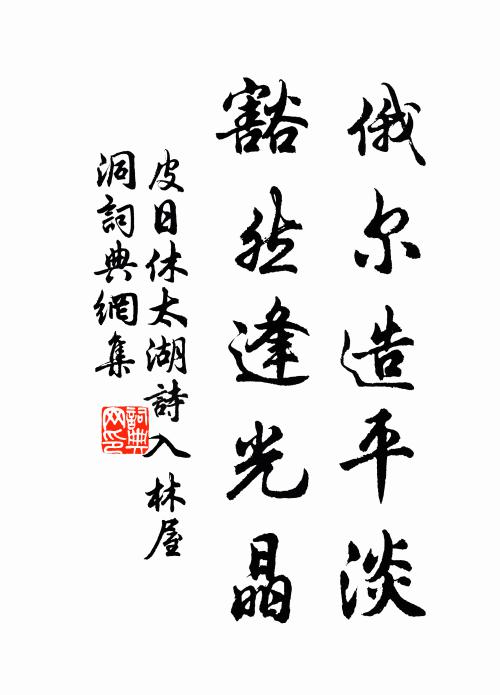 俄尔造平淡
豁然逢光晶
皮日休太湖詩入林屋
洞詞典網集
詞典网印